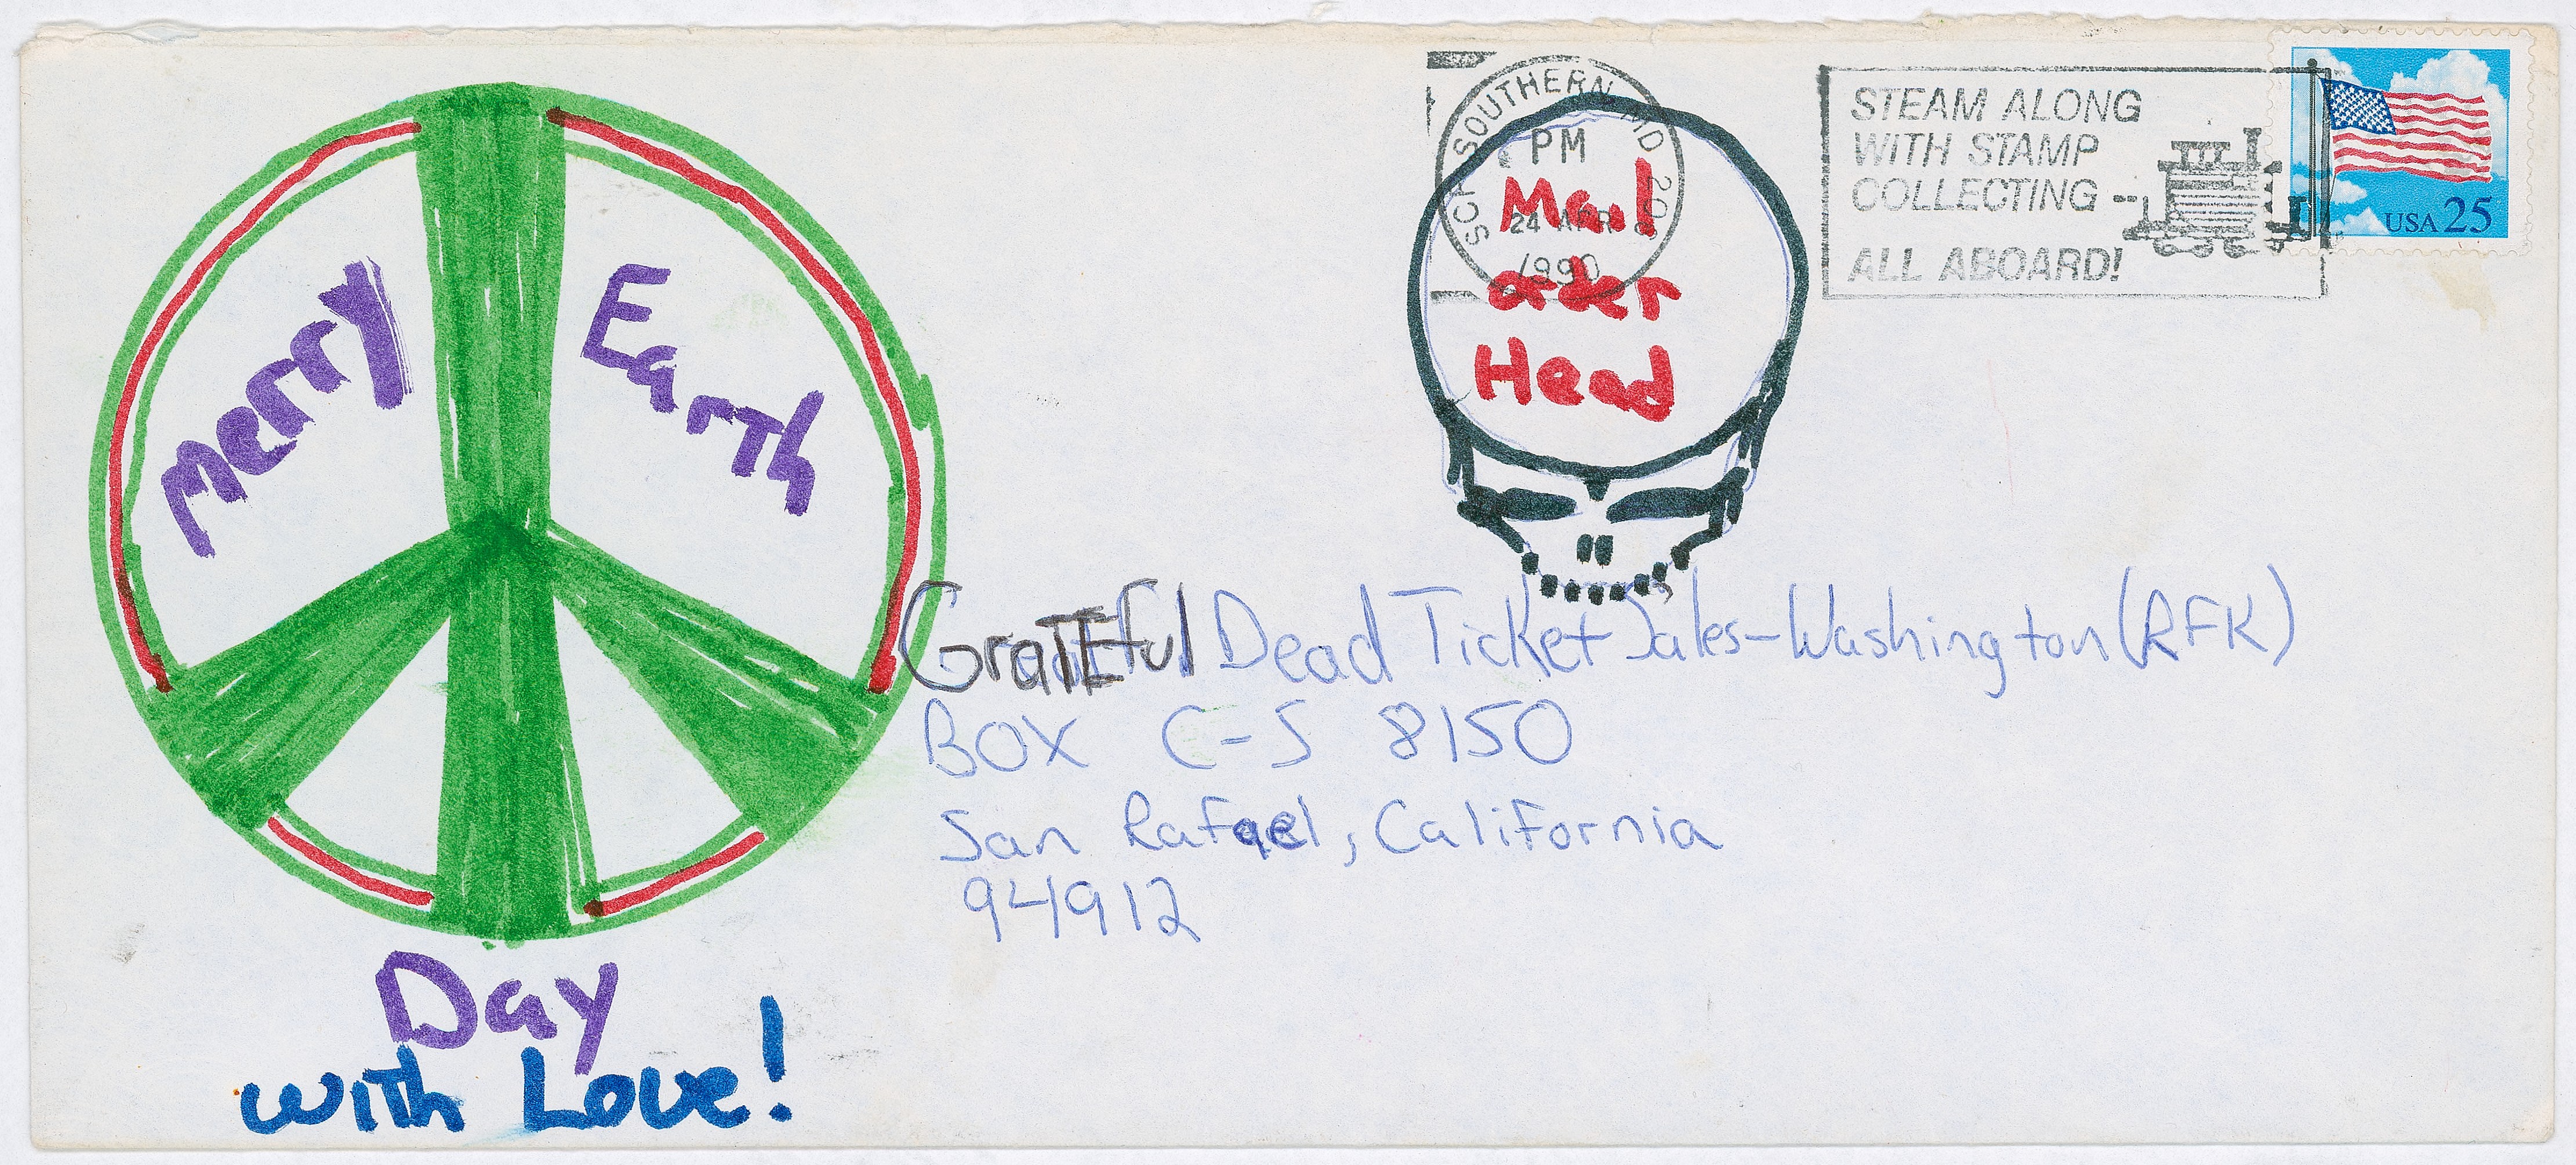 Merry
Earth
Day
with Love!
SCF SOUTHERN MD
PM
24 APR
1990
Mail
order
Head
STEAM ALONG
WITH STAMP
COLLECTING --
ALL ABOARD!
USA 25
Grateful Dead Ticket Sales-Washington (RFK)
BOX C-S 8150
San Rafael, California
94912